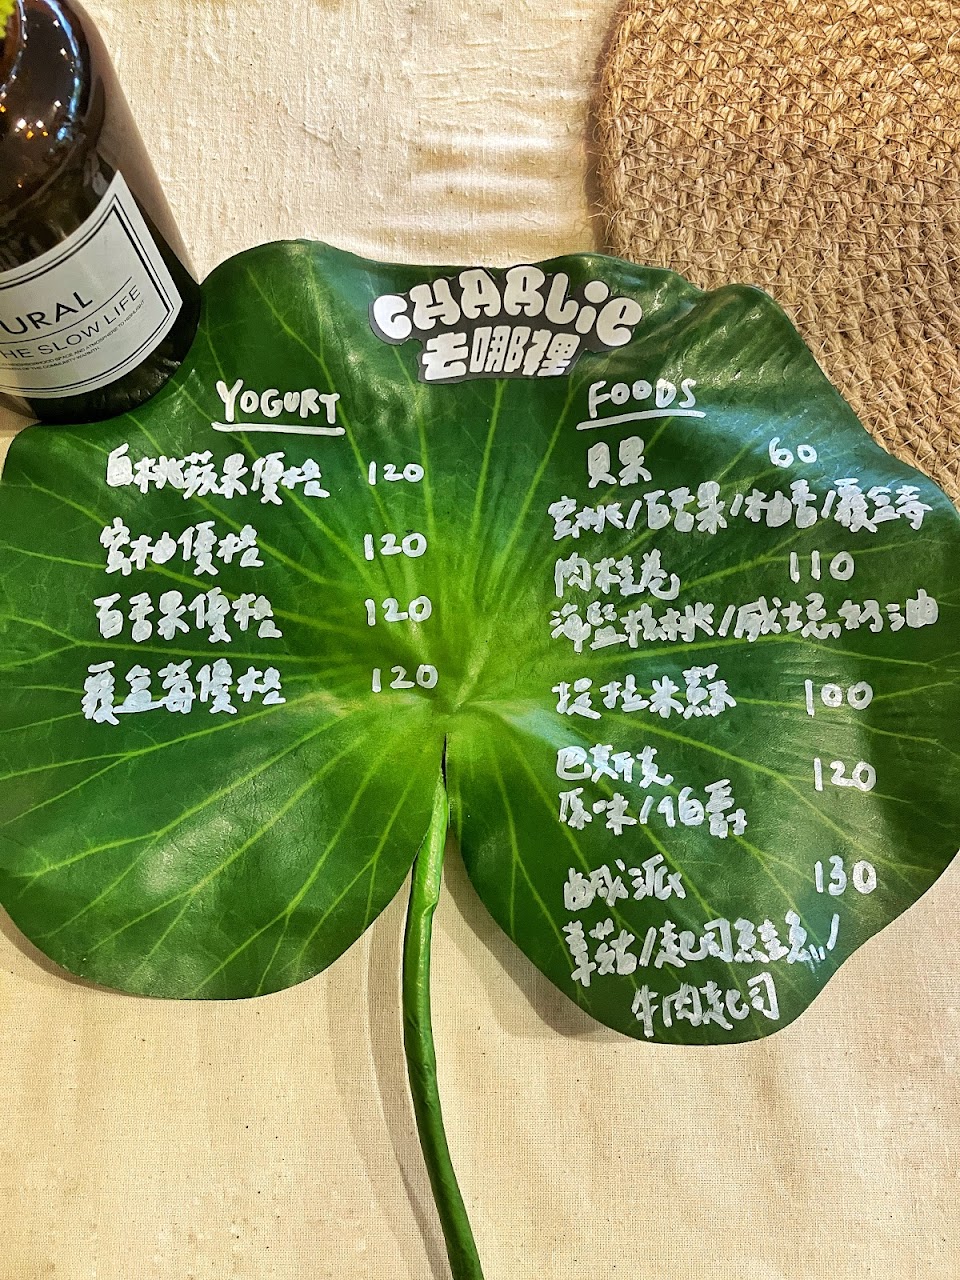 URAL
HE SLOW LIFE
CHARLie
去哪裡
YOGURT
白桃蘋果優格 120
蜜柚優格 120
百香果優格 120
覆盆莓優格 120
FOODS
貝果 60
蜜桃/百香果/柚香/覆盆莓
肉桂卷 110
海鹽核桃/威士忌奶油
提拉米蘇 100
巴斯克 120
原味/伯爵
鹹派 130
草菇/起司燻鮭魚/
牛肉起司